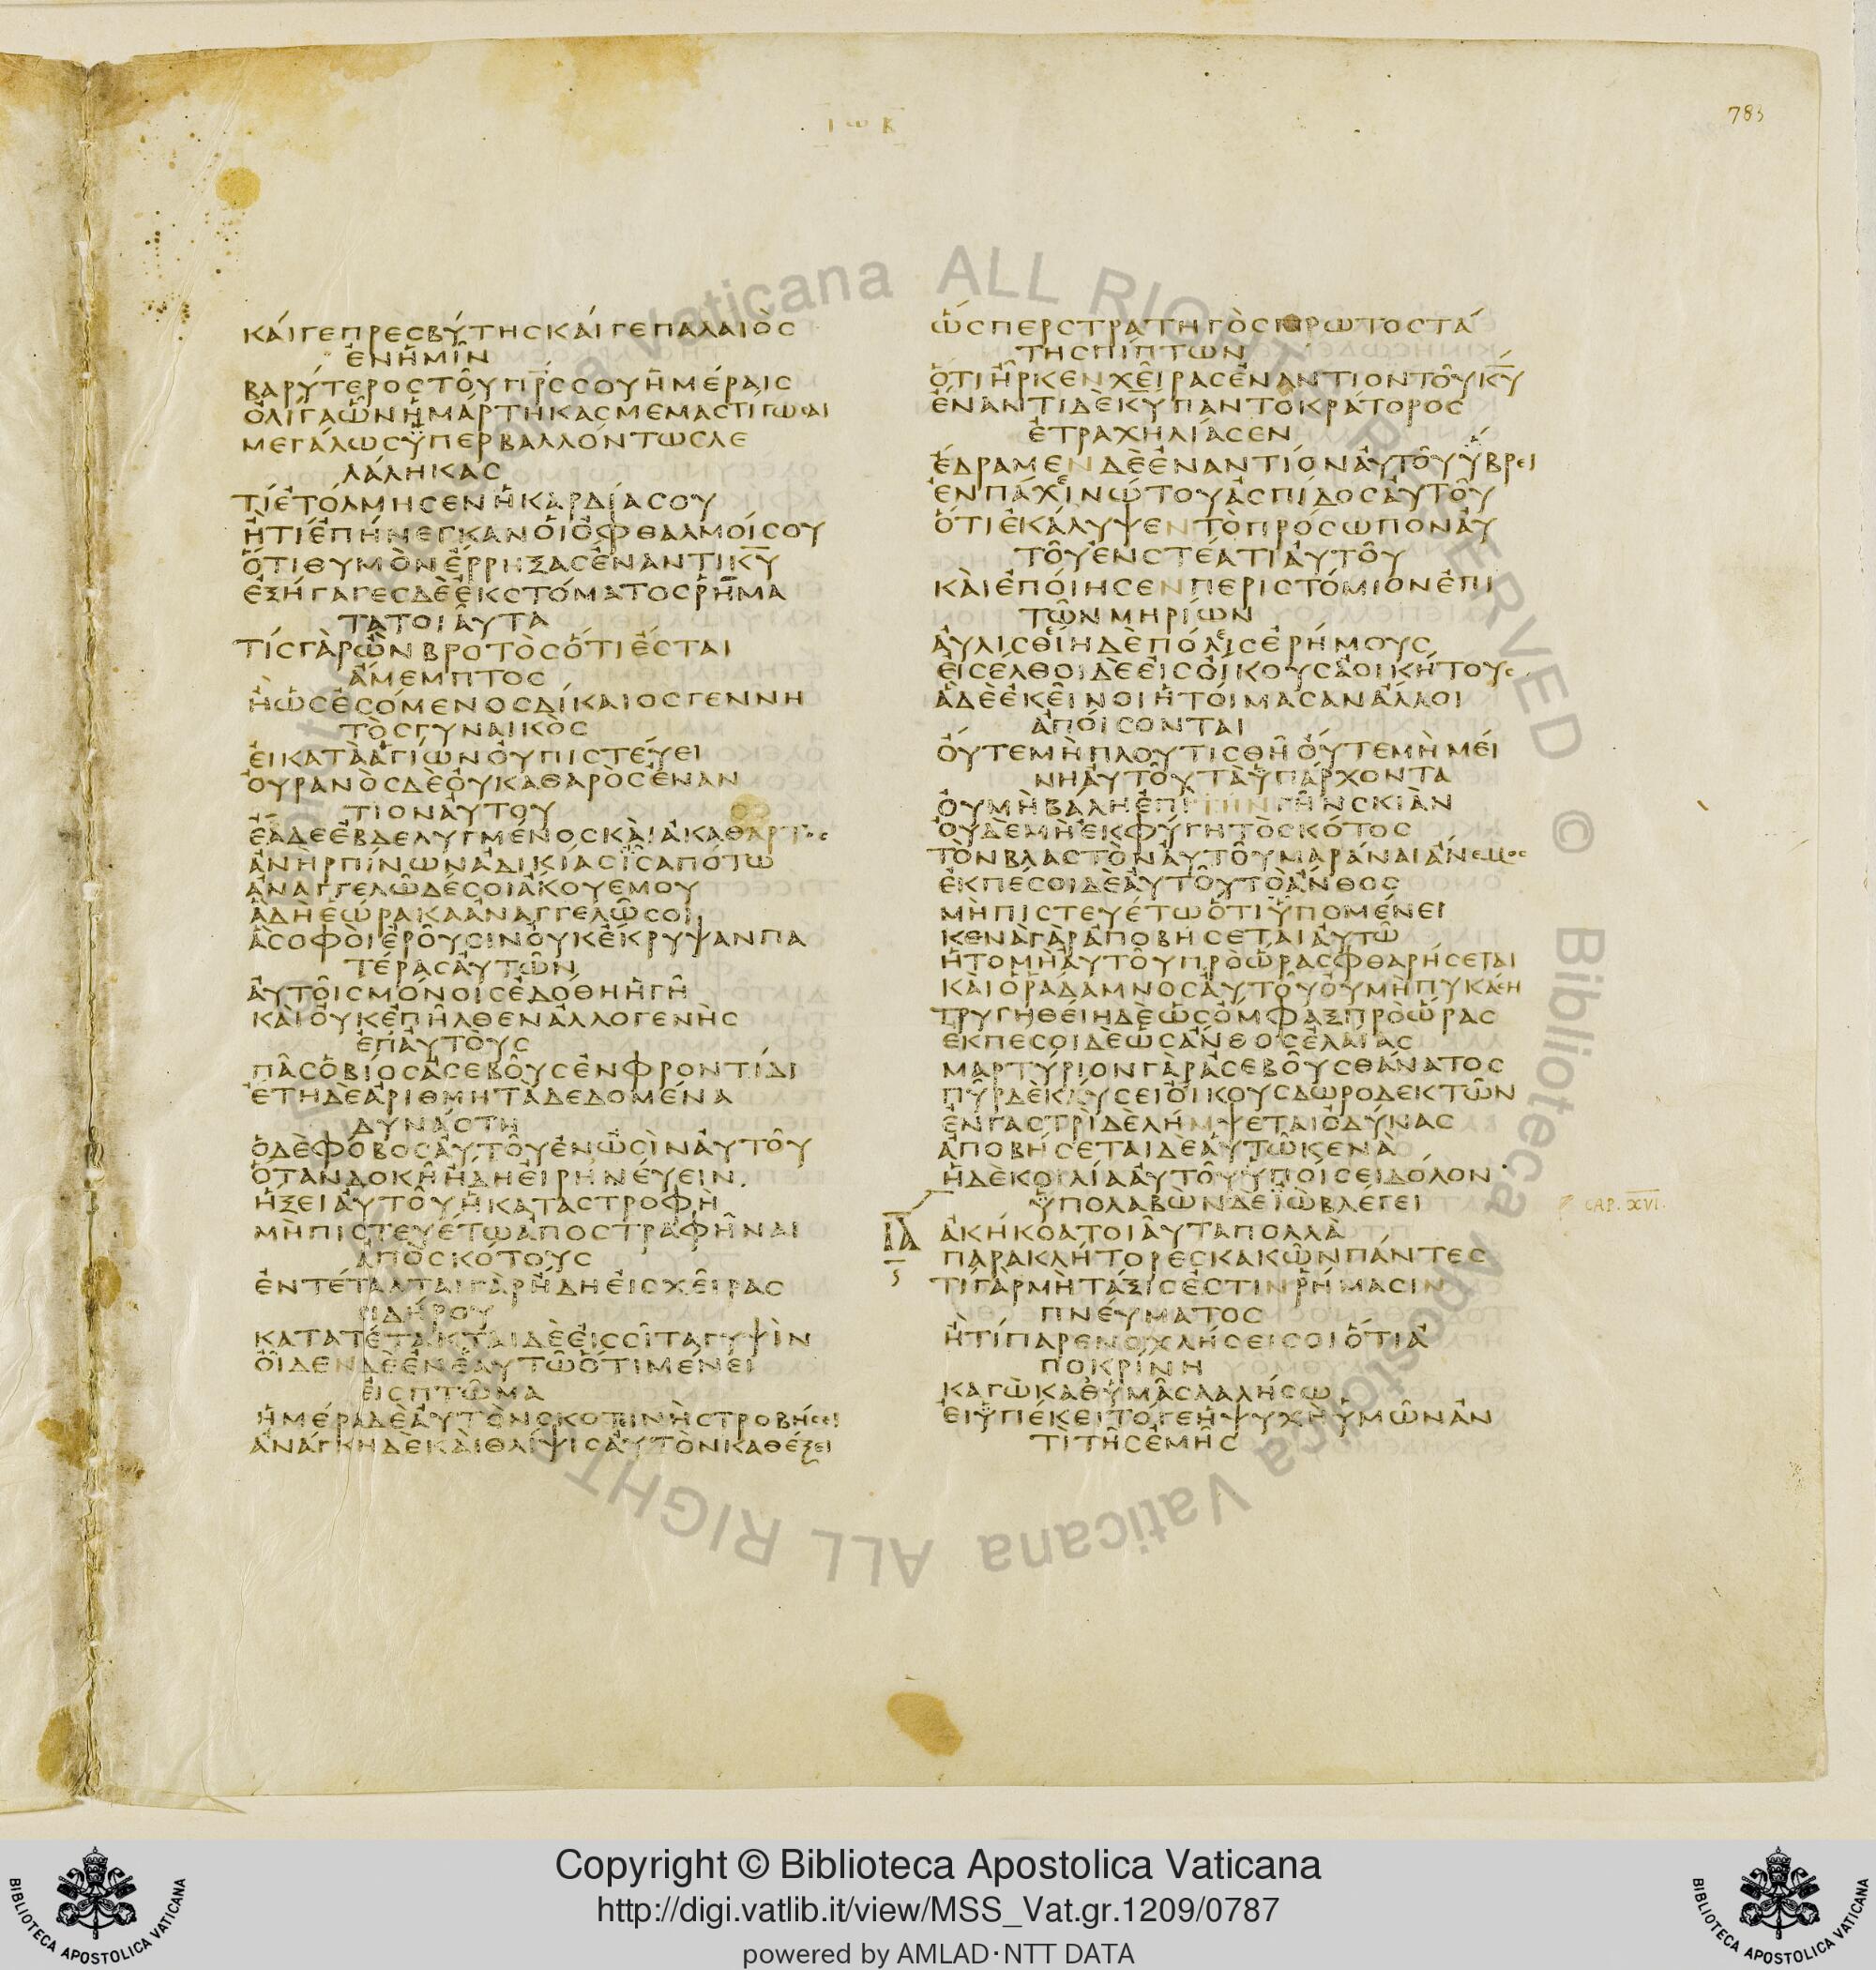 ΙΩΒ
783
ΚΑΙΓΕΠΡΕΣΒΥΤΗΣΚΑΙΓΕΠΑΛΑΙΟΣ
ΕΝΗΜΙΝ
ΒΑΡΥΤΕΡΟΣΤΟΥΠΡΣΣΟΥΗΜΕΡΑΙΣ
ΟΛΙΓΑΩΝΗΜΑΡΤΗΚΑΣΜΕΜΑΣΤΙΓΩΣΑΙ
ΜΕΓΑΛΩΣΥΠΕΡΒΑΛΛΟΝΤΩΣΛΕ
ΛΑΛΗΚΑΣ
ΤΙΕΤΟΛΜΗΣΕΝΗΚΑΡΔΙΑΣΟΥ
ΗΤΙΕΠΗΝΕΓΚΑΝΟΙΟΦΘΑΛΜΟΙΣΟΥ
ΟΤΙΘΥΜΟΝΕΡΡΗΞΑΣΕΝΑΝΤΙΚΥ
ΕΞΗΓΑΓΕΣΔΕΕΚΣΤΟΜΑΤΟΣΡΗΜΑ
ΤΑΤΟΙΑΥΤΑ
ΤΙΣΓΑΡΩΝΒΡΟΤΟΣΟΤΙΕΣΤΑΙ
ΑΜΕΜΠΤΟΣ
ΗΩΣΕΣΟΜΕΝΟΣΔΙΚΑΙΟΣΓΕΝΝΗ
ΤΟΣΓΥΝΑΙΚΟΣ
ΕΙΚΑΤΑΑΓΙΩΝΟΥΠΙΣΤΕΥΕΙ
ΟΥΡΑΝΟΣΔΕΟΥΚΑΘΑΡΟΣΕΝΑΝ
ΤΙΟΝΑΥΤΟΥ
ΕΑΔΕΕΒΔΕΛΥΓΜΕΝΟΣΚΑΙΑΚΑΘΑΡΤΟΣ
ΑΝΗΡΠΙΝΩΝΑΔΙΚΙΑΣΙΣΑΠΟΤΩ
ΑΝΑΓΓΕΛΩΔΕΣΟΙΑΚΟΥΕΜΟΥ
ΑΔΗΕΩΡΑΚΑΑΝΑΓΓΕΛΩΣΟΙ
ΑΣΟΦΟΙΕΡΟΥΣΙΝΟΥΚΕΚΡΥΨΑΝΠΑ
ΤΕΡΑΣΑΥΤΩΝ
ΑΥΤΟΙΣΜΟΝΟΙΣΕΔΟΘΗΗΓΗ
ΚΑΙΟΥΚΕΠΗΛΘΕΝΑΛΛΟΓΕΝΗΣ
ΕΠΑΥΤΟΥΣ
ΠΑΣΟΒΙΟΣΑΣΕΒΟΥΣΕΝΦΡΟΝΤΙΔΙ
ΕΤΗΔΕΑΡΙΘΜΗΤΑΔΕΔΟΜΕΝΑ
ΔΥΝΑΣΤΗ
ΟΔΕΦΟΒΟΣΑΥΤΟΥΕΝΩΣΙΝΑΥΤΟΥ
ΟΤΑΝΔΟΚΗΗΔΗΕΙΡΗΝΕΥΕΙΝ
ΗΞΕΙΑΥΤΟΥΗΚΑΤΑΣΤΡΟΦΗ
ΜΗΠΙΣΤΕΥΕΤΩΑΠΟΣΤΡΑΦΗΝΑΙ
ΑΠΟΣΚΟΤΟΥΣ
ΕΝΤΕΤΑΛΤΑΙΓΑΡΗΔΗΕΙΣΧΕΙΡΑΣ
ΣΙΔΗΡΟΥ
ΚΑΤΑΤΕΤΑΚΤΑΙΔΕΕΙΣΣΙΤΑΓΥΨΙΝ
ΟΙΔΕΝΔΕΕΝΕΑΥΤΩΟΤΙΜΕΝΕΙ
ΕΙΣΠΤΩΜΑ
ΗΜΕΡΑΔΕΑΥΤΟΝΣΚΟΤΙΝΗΣΤΡΟΒΗΣΕΙ
ΑΝΑΓΚΗΔΕΚΑΙΘΛΙΨΙΣΑΥΤΟΝΚΑΘΕΞΕΙ
ΩΣΠΕΡΣΤΡΑΤΗΓΟΣΠΡΩΤΟΣΤΑ
ΤΗΣΠΙΠΤΩΝ
ΟΤΙΗΡΚΕΝΧΕΙΡΑΣΕΝΑΝΤΙΟΝΤΟΥΚΥ
ΕΝΑΝΤΙΔΕΚΥΠΑΝΤΟΚΡΑΤΟΡΟΣ
ΕΤΡΑΧΗΛΙΑΣΕΝ
ΕΔΡΑΜΕΝΔΕΕΝΑΝΤΙΟΝΑΥΤΟΥΥΒΡΕΙ
ΕΝΠΑΧΙΝΩΤΟΥΑΣΠΙΔΟΣΑΥΤΟΥ
ΟΤΙΕΚΑΛΥΨΕΝΤΟΠΡΟΣΩΠΟΝΑΥ
ΤΟΥΕΝΣΤΕΑΤΙΑΥΤΟΥ
ΚΑΙΕΠΟΙΗΣΕΝΠΕΡΙΣΤΟΜΙΟΝΕΠΙ
ΤΩΝΜΗΡΙΩΝ
ΑΥΛΙΣΘΙΗΔΕΠΟΛΙΣΕΡΗΜΟΥΣ
ΕΙΣΕΛΘΟΙΔΕΕΙΣΟΙΚΟΥΣΑΟΙΚΗΤΟΥΣ
ΑΔΕΕΚΕΙΝΟΙΗΤΟΙΜΑΣΑΝΑΛΛΟΙ
ΑΠΟΙΣΟΝΤΑΙ
ΟΥΤΕΜΗΠΛΟΥΤΙΣΘΗΟΥΤΕΜΗΜΕΙ
ΝΗΑΥΤΟΥΤΑΥΠΑΡΧΟΝΤΑ
ΟΥΜΗΒΑΛΗΕΠΙΤΗΝΓΗΝΣΚΙΑΝ
ΟΥΔΕΜΗΕΚΦΥΓΗΤΟΣΚΟΤΟΣ
ΤΟΝΒΛΑΣΤΟΝΑΥΤΟΥΜΑΡΑΝΑΙΑΝΕΜΟΣ
ΕΚΠΕΣΟΙΔΕΑΥΤΟΥΤΟΑΝΘΟΣ
ΜΗΠΙΣΤΕΥΕΤΩΟΤΙΥΠΟΜΕΝΕΙ
ΚΕΝΑΓΑΡΑΠΟΒΗΣΕΤΑΙΑΥΤΩ
ΗΤΟΜΗΑΥΤΟΥΠΡΟΩΡΑΣΦΘΑΡΗΣΕΤΑΙ
ΚΑΙΟΡΑΔΑΜΝΟΣΑΥΤΟΥΟΥΜΗΠΥΚΑΣΗ
ΤΡΥΓΗΘΕΙΗΔΕΩΣΟΜΦΑΞΠΡΟΩΡΑΣ
ΕΚΠΕΣΟΙΔΕΩΣΑΝΘΟΣΕΛΑΙΑΣ
ΜΑΡΤΥΡΙΟΝΓΑΡΑΣΕΒΟΥΣΘΑΝΑΤΟΣ
ΠΥΡΔΕΚΑΥΣΕΙΟΙΚΟΥΣΔΩΡΟΔΕΚΤΩΝ
ΕΝΓΑΣΤΡΙΔΕΛΗΜΨΕΤΑΙΟΔΥΝΑΣ
ΑΠΟΒΗΣΕΤΑΙΔΕΑΥΤΩΚΕΝΑ
ΗΔΕΚΟΙΛΙΑΑΥΤΟΥΥΠΟΙΣΕΙΔΟΛΟΝ
ΥΠΟΛΑΒΩΝΔΕΙΩΒΛΕΓΕΙ
CAP. XVI.
ΙΑ ΑΚΗΚΟΑΤΟΙΑΥΤΑΠΟΛΛΑ
ΠΑΡΑΚΛΗΤΟΡΕΣΚΑΚΩΝΠΑΝΤΕΣ
ΤΙΓΑΡΜΗΤΑΞΙΣΕΣΤΙΝΡΗΜΑΣΙΝ
ΠΝΕΥΜΑΤΟΣ
ΗΤΙΠΑΡΕΝΟΧΛΗΣΕΙΣΟΙΟΤΙΑ
ΠΟΚΡΙΝΗ
ΚΑΓΩΚΑΘΥΜΑΣΛΑΛΗΣΩ
ΕΙΥΠΕΚΕΙΤΟΓΕΗΨΥΧΗΥΜΩΝΑΝ
ΤΙΤΗΣΕΜΗΣ
Biblioteca Apostolica Vaticana ALL RIGHTS RESERVED ©
Biblioteca Apostolica Vaticana ALL RIGHTS RESERVED ©
Copyright © Biblioteca Apostolica Vaticana
http://digi.vatlib.it/view/MSS_Vat.gr.1209/0787
powered by AMLAD·NTT DATA
BIBLIOTECA APOSTOLICA VATICANA
BIBLIOTECA APOSTOLICA VATICANA